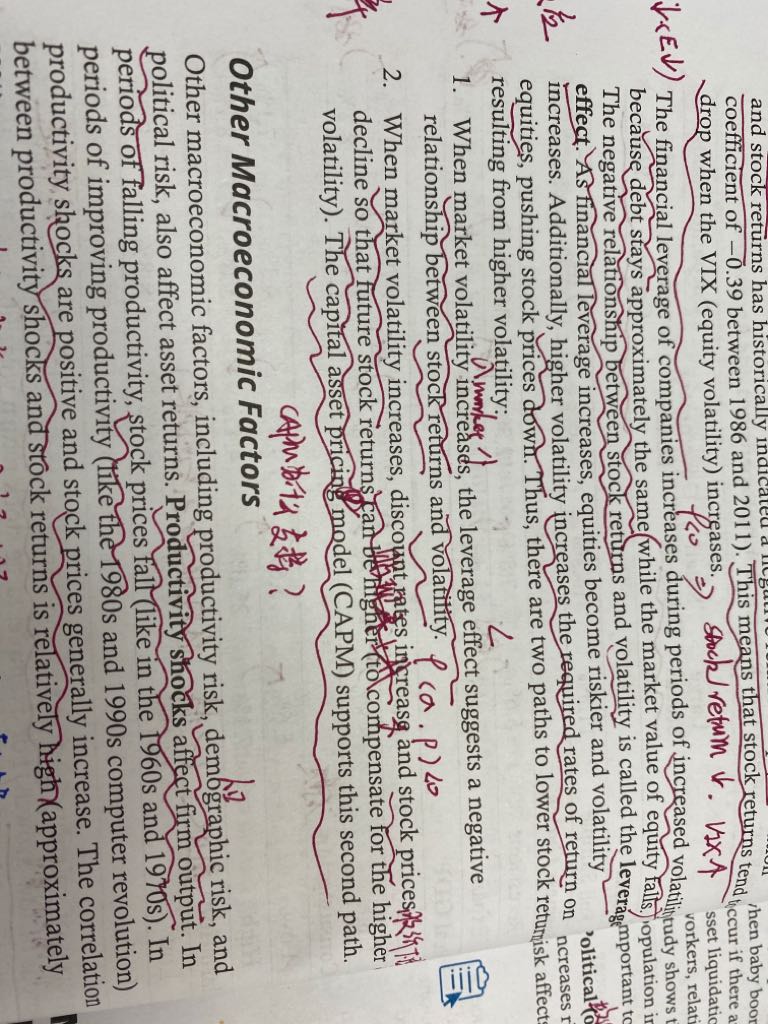 and stock returns has historically indicated a
coefficient of −0.39 between 1986 and 2011). This means that stock returns tend
drop when the VIX (equity volatility) increases.
ρ<0 ⇒ stock return ↓. VIX↑
↓(E↓)
The financial leverage of companies increases during periods of increased
because debt stays approximately the same (while the market value of equity falls)
The negative relationship between stock returns and volatility is called the leverage
effect. As financial leverage increases, equities become riskier and volatility
increases. Additionally, higher volatility increases the required rates of return on
equities, pushing stock prices down. Thus, there are two paths to lower stock
resulting from higher volatility:
σ market ↑
1. When market volatility increases, the leverage effect suggests a negative
relationship between stock returns and volatility.
ρ(σ, P)<0
2. When market volatility increases, discount rates increase and stock prices
decline so that future stock returns can be higher (to compensate for the higher
volatility). The capital asset pricing model (CAPM) supports this second path.
CAPM 为什么支持?
Other Macroeconomic Factors
Other macroeconomic factors, including productivity risk, demographic risk, and
political risk, also affect asset returns. Productivity shocks affect firm output. In
periods of falling productivity, stock prices fall (like in the 1960s and 1970s). In
periods of improving productivity (like the 1980s and 1990s computer revolution)
productivity shocks are positive and stock prices generally increase. The correlation
between productivity shocks and stock returns is relatively high (approximately
hen baby boom
occur if there a
sset liquidatio
vorkers, relati
tudy shows t
opulation in
mportant to
olitical
ncreases r
isk affects